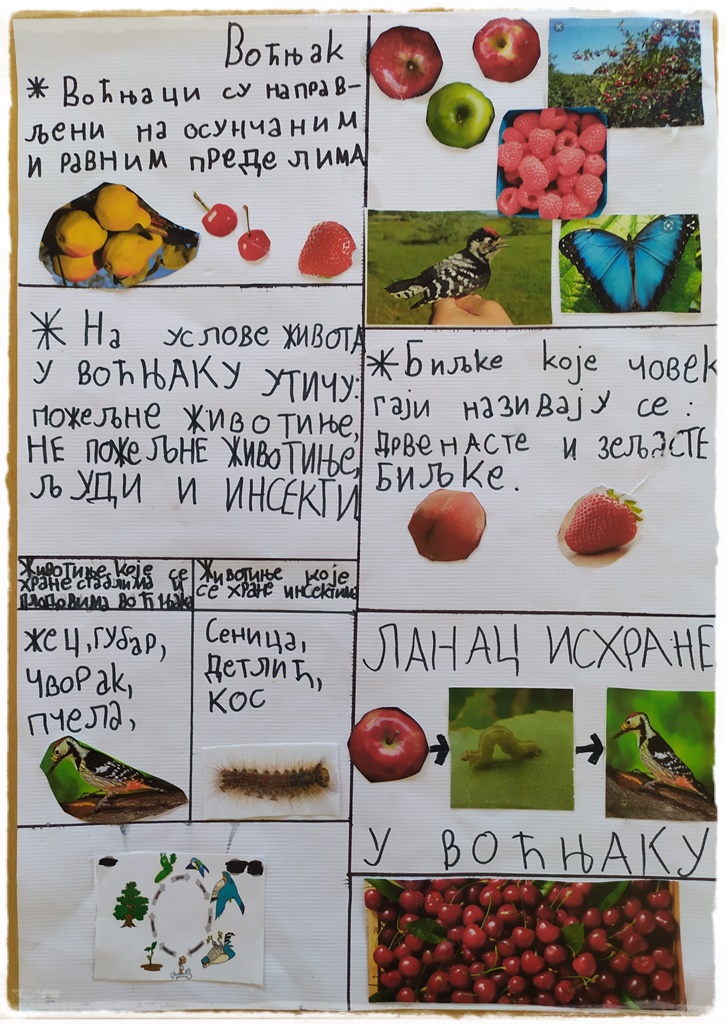 Воћњак
* Воћњаци су направ-
љени на осунчаним
и равним пределима
* На услове живота
у воћњаку утичу:
пожељне животиње,
не пожељне животиње,
људи и инсекти
Животиње које се
хране стаблима и
плодовима воћњака
жец, губар,
чворак,
пчела,
Животиње које
се хране инсектима
Сеница,
детлић,
кос
* Биљке које човек
гаји називају се:
дрвенасте и зељасте
биљке.
ЛАНАЦ ИСХРАНЕ
У ВОЋЊАКУ